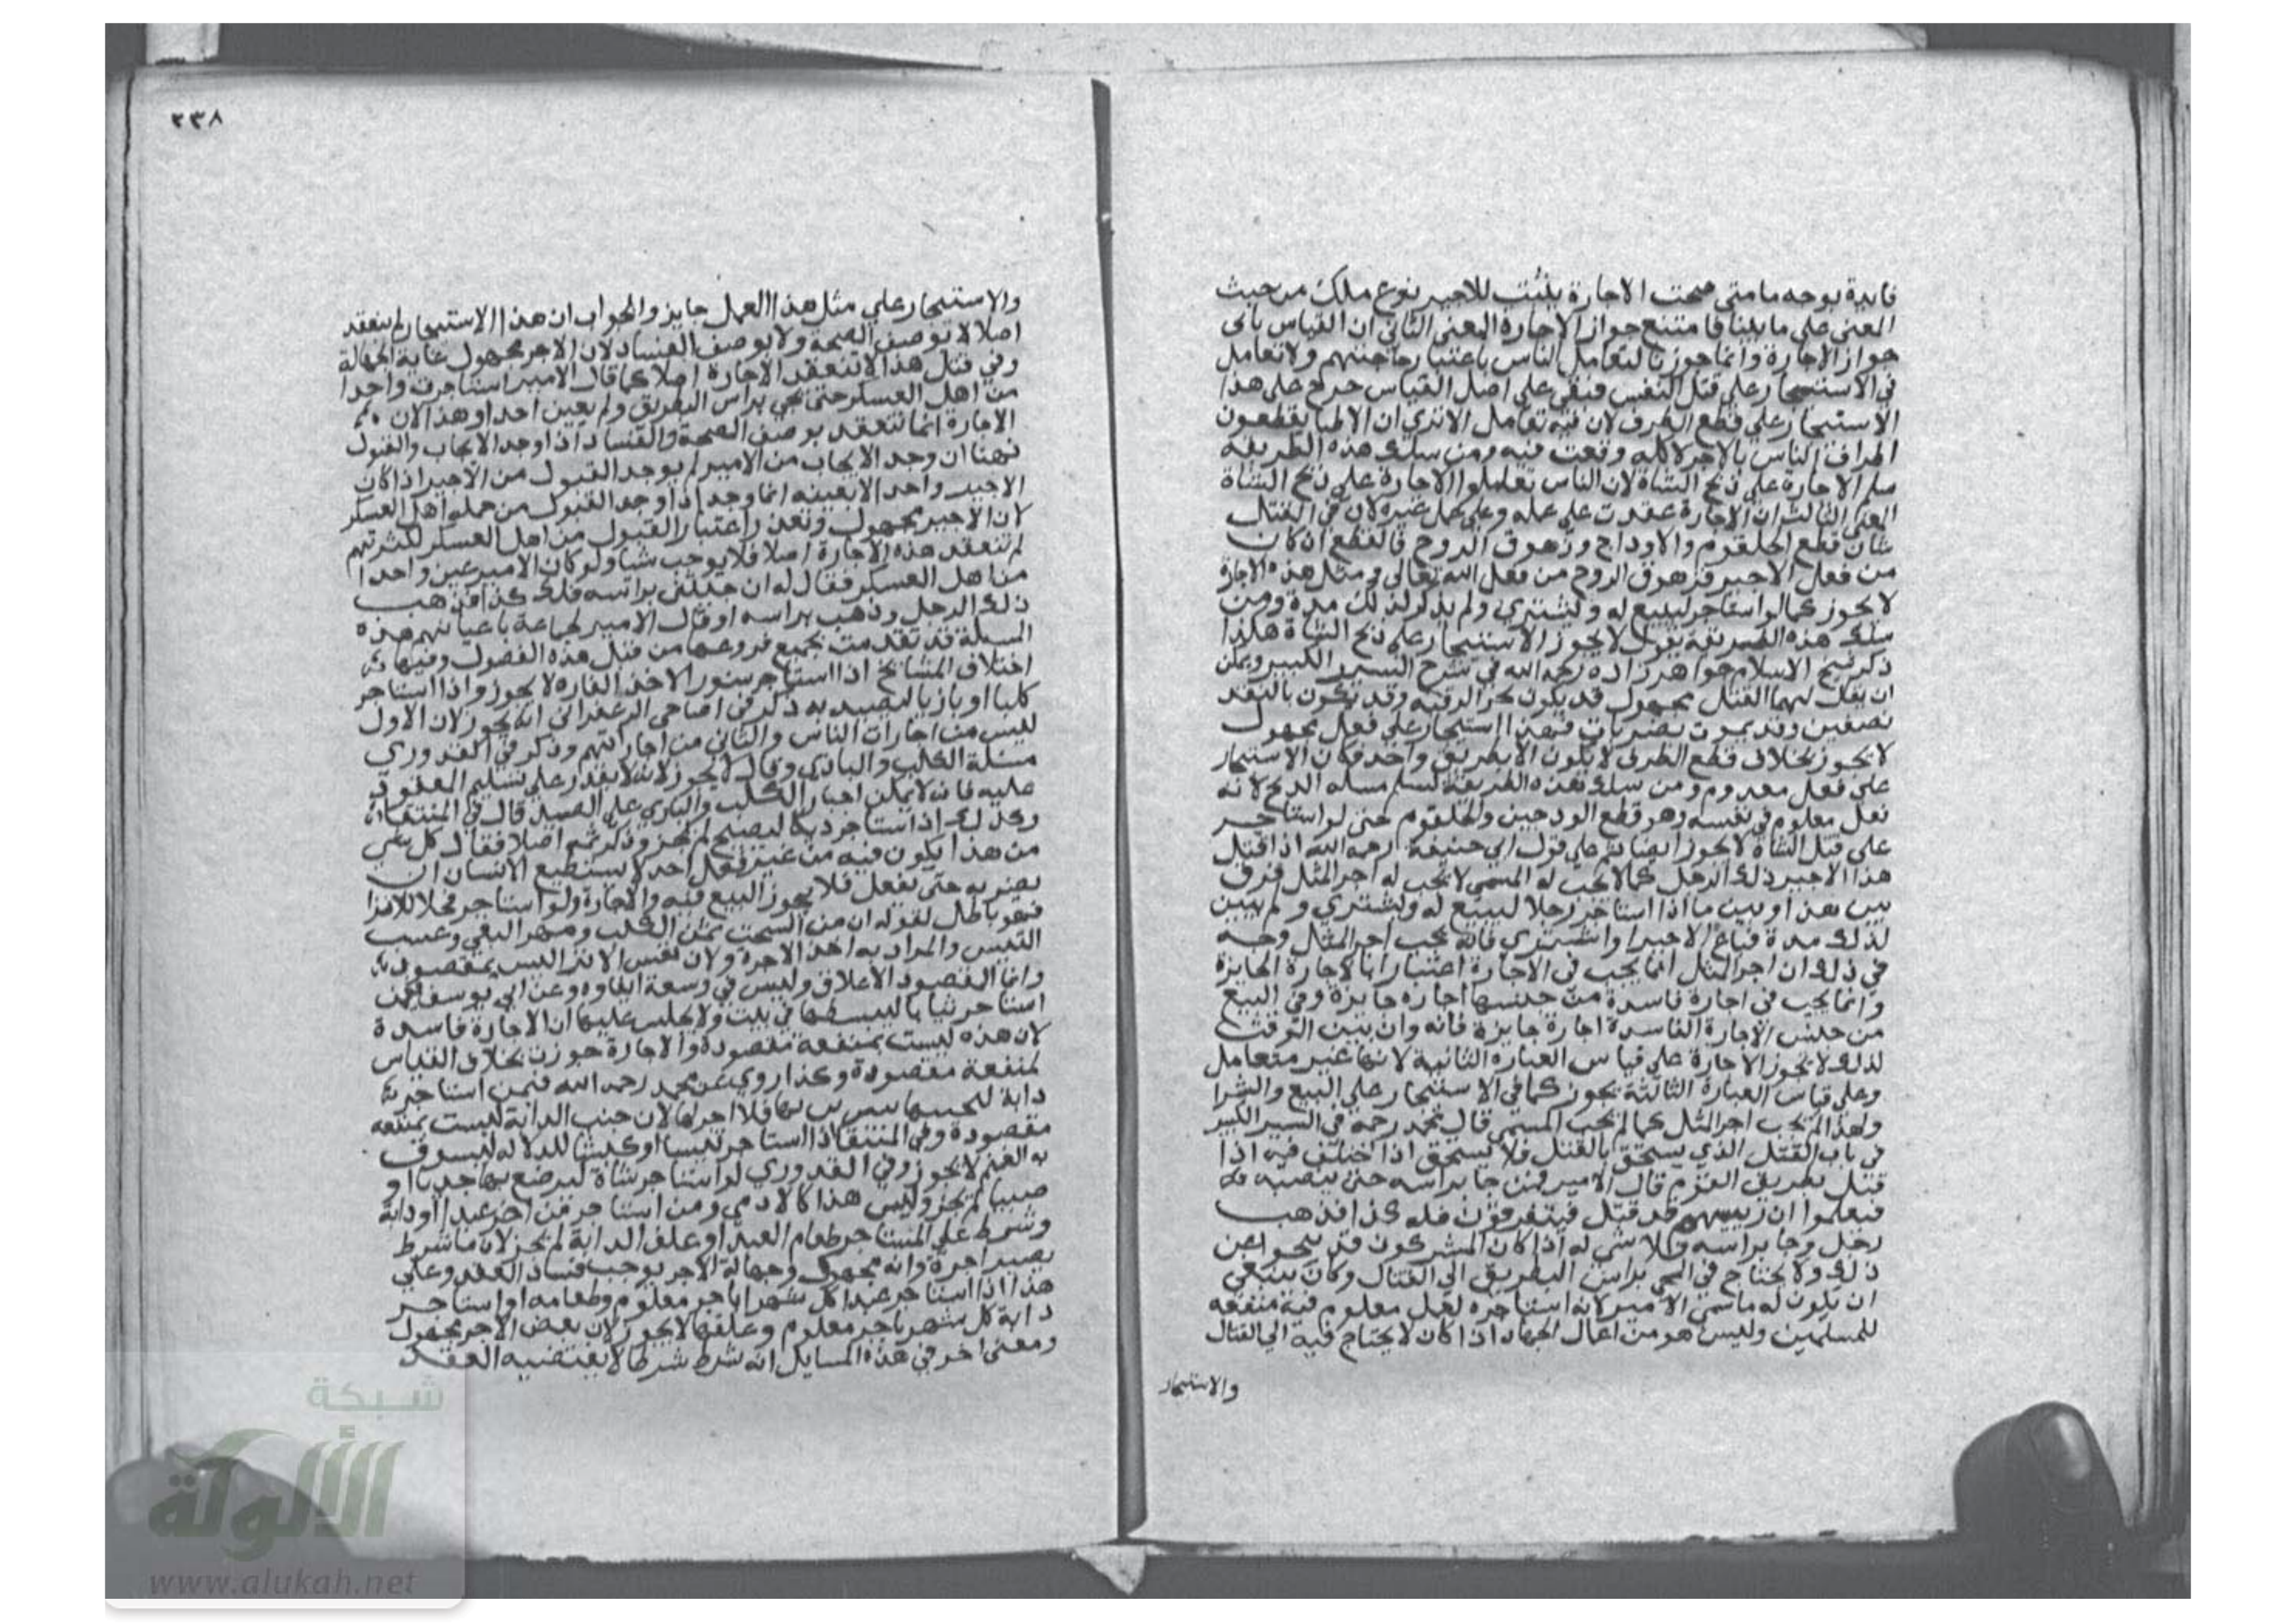 فايدة بوجه ما متى صحت الاجارة يثبت للاجير نوع ملك من حيث
المعنى على ما بينا فامتنع جواز الاجارة المعنى الثاني ان القياس يابى
جواز الاجارة وانما جوزنا لتعامل الناس باعتبار حاجتهم ولا تعامل
في الاستيجار على قتل النفس فبقي على اصل القياس خرج على هذا
الاستيجار على قطع الطرف لان فيه تعامل الا تري ان الاطبا يقطعون
اطراف الناس بالاجر لاكلة وقعت فيه ومن سلك هذه الطريقة
سلم الاجارة على ذبح الشاة لان الناس تعاملوا الاجارة على ذبح الشاة
المعنى الثالث ان الاجارة عقدت على عمله وعلى عمل غيره لان في القتل
شان قطع الحلقوم والاوداج وزهوق الروح فالقطع ان كان
من فعل الاجير فزهوق الروح من فعل الله تعالى ومثل هذه الاجارة
لا يجوز كما لو استاجر ليبيع له ويشتري ولم يذكر لذلك مدة ومن
سلك هذه الطريقة يقول لا يجوز الاستيجار على ذبح الشاة هكذا
ذكر شيخ الاسلام خواهر زاده رحمه الله في شرح السير الكبير ويمكن
ان يقال بهما القتل مجهول قد يكون بحز الرقبة وقد يكون بالقد
نصفين وقد يموت بضربات فهذا استيجار على فعل مجهول
لا يجوز بخلاف قطع الطرف لا يكون الا بطريق واحد فكان الاستيجار
على فعل معدوم ومن سلك هذه الطريقة يسلم مسلة الذبح لانه
فعل معلوم في نفسه وهو قطع الودجين والحلقوم حتى لو استاجر
على قتل الشاة لا يجوز ايضا ثم على قول ابي حنيفة رحمه الله اذا قتل
هذا الاجير ذلك الرجل كما لا يجب له المسمى لا يجب له اجر المثل فرق
بين هذا وبين ما اذا استاجر رجلا ليبيع له ويشتري ولم يبين
لذلك مدة فباع الاجير او اشتري فانه يجب اجر المثل وجه
في ذلك ان اجر المثل انما يجب في الاجارة اعتبارا بالاجارة الجايزة
وانما يجب في اجارة فاسدة من جنسها اجارة جايزة وفي البيع
من جنس الاجارة الفاسدة اجارة جايزة فانه وان بين التوقت
لذلك لا تجوز الاجارة على قياس العبارة الثانية لانها غير متعامل
وعلى قياس العبارة الثالثة يجوز كما في الاستيجار على البيع والشرا
ولهذا لم يجب اجر المثل كما لم يجب المسمى قال محمد رحمه في السير الكبير
في باب القتل الذي يستحق بالقتل فلا يستحق اذا اختلف فيه اذا
قتل بطريق القوم قال الامير فمن جا براسه حتى ينصبه
فيعلموا ان رييسهم قد قتل فيتفرقون فله كذا فذهب
رجل وجا براسه فلا شي له اذا كان المشركون قد تنحوا عن
ذلك ولا يحتاج في المجي براس البطريق الي القتال وكان ينبغي
ان يكون له ما سمى الامير لانه استاجره لعمل معلوم فيه منفعه
للمسلمين وليس هو من اعمال الجهاد اذا كان لا يحتاج فيه الى القتال
والاستيجار
٢٣٨
والاستيجار على مثل هذا العمل جايز والجواب ان هذا الاستيجار لم ينعقد
اصلا لا توصف الصحة ولا يوصف الفساد لان الاجر مجهول غاية الجهالة
وفي مثل هذا لا تنعقد الاجارة اصلا كما قال الامير استاجرت واحدا
من اهل العسكر حتى يجي براس البطريق ولم يعين احدا وهذا لان
الاجارة انما تنعقد بوصف الصحة والفساد اذا وجد الايجاب والقبول
فهنا ان وجد الايجاب من الامير لم يوجد القبول من الاجير اذا كان
الاجير واحدا لا بعينه انما وجد اذا وجد القبول من جملة اهل العسكر
لان الاجير مجهول وتعذر اعتبار القبول من اهل العسكر لكثرتهم
لم تنعقد هذه الاجارة اصلا فلا يوجب شيا ولو كان الامير عين واحدا
من اهل العسكر فقال له ان جيتني براسه فلك كذا فذهب
ذلك الرجل وذهب براسه او قال الامير لجماعة باعيانهم هذه
المسلة قد تقدمت بجميع فروعها من قبل هذه الفصول وفيها
اختلاف المشايخ اذا استاجر سنورا لاخذ الفارة لا يجوز واذا استاجر
كلبا او بازيا ليصيد به ذكر في اضاحي الزعفراني انه يجوز لان الاول
ليس من اجارات الناس والثاني من اجاراتهم وذكر في القدوري
مسلة الكلب والبازي وقال لا يجوز لانه لا يقدر على تسليم المعقود
عليه فانه لا يمكن اجبار الكلب والبازي على الصيد قال في المنتقا
وكذلك اذا استاجر ديكا ليصيح لم يجز وذكر ثم اصلا فقال كل شي
من هذا يكون فيه من غير فعل احد لا يستطيع الانسان ان
يضربه حتى يفعل فلا يجوز البيع فيه والاجارة ولو استاجر فحلا للانزا
فهو باطل لقوله ان من السحت ثمن الكلب ومهر البغي وعسب
التيس والمراد به اخذ الاجرة ولان نفس الانزا ليس بمقصود
وانما المقصود الاعلاق وليس في وسعه ايفاوه وعن ابي يوسف فيمن
استاجر ثيابا ليبسطها في بيت ولا يجلس عليها ان الاجارة فاسدة
لان هذه ليست بمنفعة مقصودة والاجارة جوزت بخلاف القياس
لمنفعة مقصودة وكذا روي عن محمد رحمه الله فيمن استاجر
دابة ليجنبها بين بها فلا اجر لها لان جنب الدابة ليست بمنفعه
مقصودة وفي المنتقا اذا استاجر تيسا او كبشا للدلاله ليسوق
به الغنم لا يجوز وفي القدوري لو استاجر شاة ليرضع بها جديا او
صبيا لم يجز وليس هذا كالادمي ومن استاجر من اخر عبدا او دابة
وشرط على المستاجر طعام العبد او علف الدابة لم يجز لان ما شرط
يصير اجرة وانه مجهول وجهالة الاجر يوجب فساد العقد وعلى
هذا اذا استاجر عبدا كل شهر باجر معلوم وطعامه او استاجر
دابة كل شهر باجر معلوم وعلفها لا يجوز لان بعض الاجر مجهول
ومعنى اخر في هذه المسايل انه شرط شرطا لا يقتضيه العقد
شبكة
الألوكة
www.alukah.net